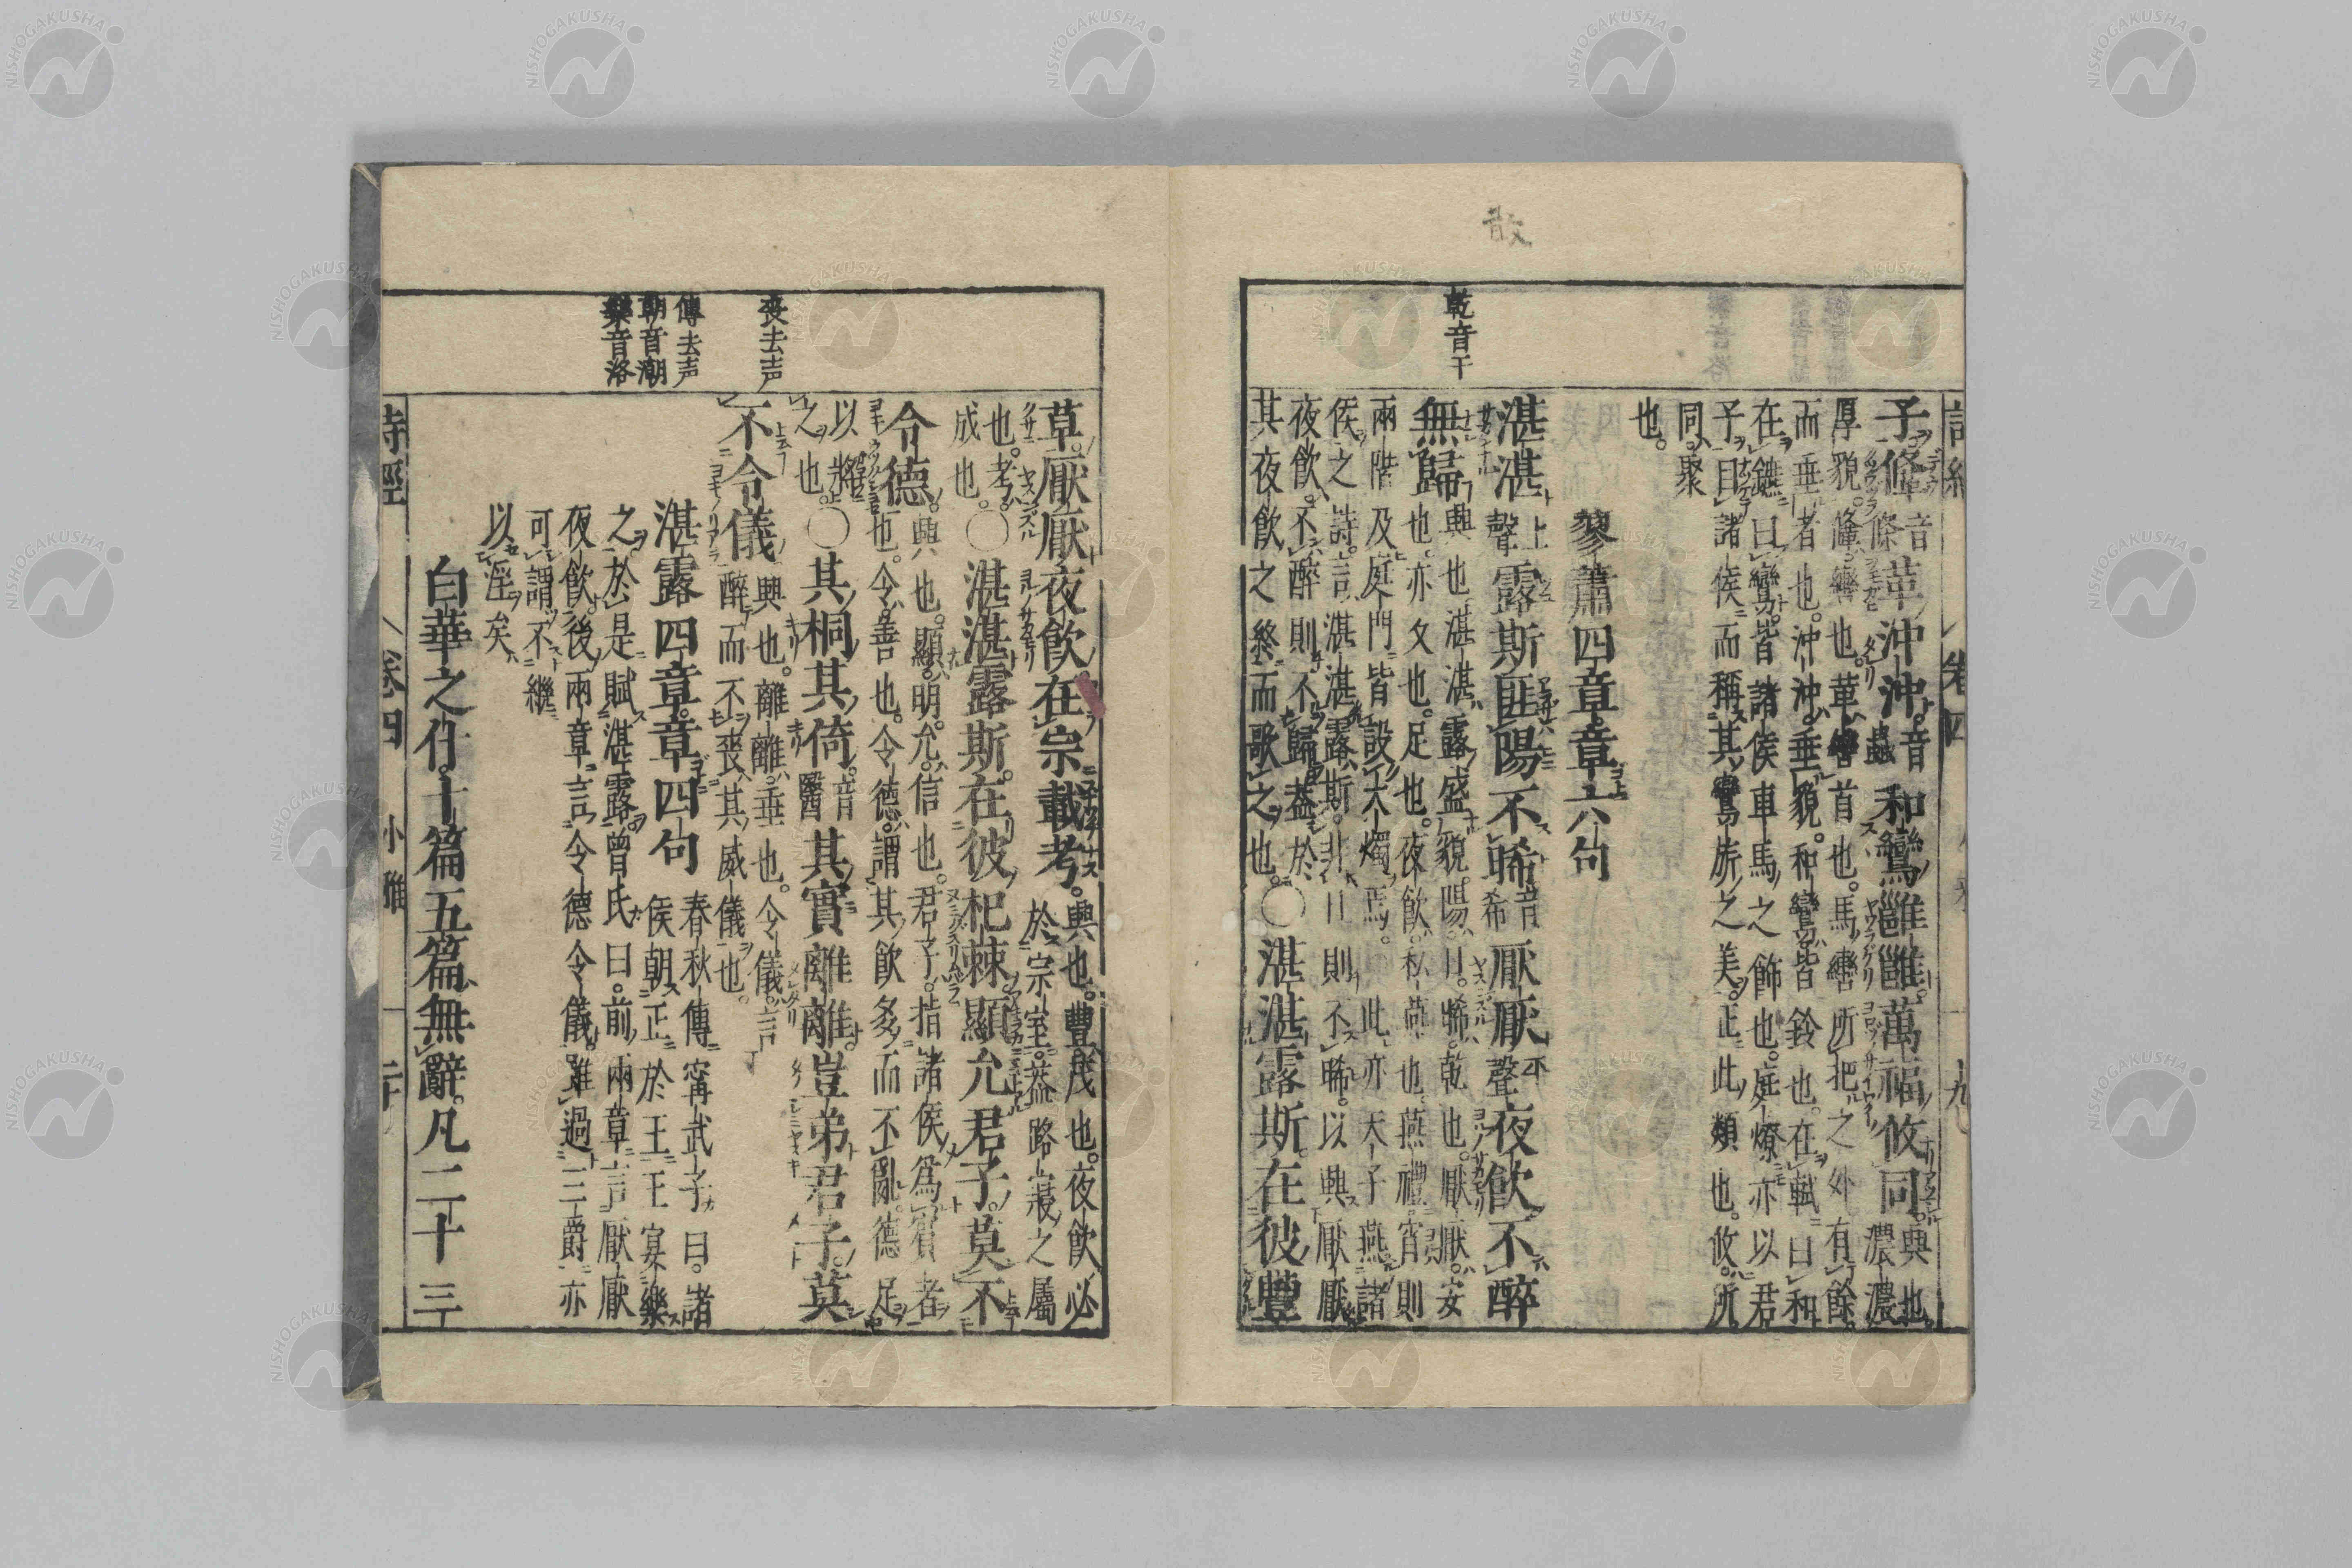 散
乾音干
子鞗音條革沖沖音蟲和鸞雝雝萬福攸同興也濃濃
厚貌鞗轡也革轡首也馬轡所把之外有餘
而垂者也沖沖垂貌和鸞皆鈴也在軾曰和
在鑣曰鸞皆諸侯車馬之飾也庭燎亦以君
子目諸侯而稱其鸞旂之美正此類也攸所
同聚
也
蓼蕭四章章六句
湛湛上聲露斯匪陽不晞音希厭厭平聲夜飲不醉
無歸興也湛湛露盛貌陽日晞乾也厭厭安
也亦久也足也夜飲私燕也燕禮宵則
兩階及庭門皆設大燭焉此亦天子燕諸
侯之詩言湛湛露斯非日則不晞以興厭厭
夜飲不醉則不歸蓋於
其夜飲之終而歌之也○湛湛露斯在彼豐
詩經 卷四 小雅
喪去声
傳去声
朝音潮
樂音洛
草厭厭夜飲在宗載考興也豐茂也夜飲必於宗室蓋路寢之屬
也考
成也○湛湛露斯在彼杞棘顯允君子莫不
令德興也顯明允信也君子指諸侯爲賓者也令善也令德謂其飲多而不亂德足
以將
之也○其桐其倚音醫其實離離豈弟君子莫
不令儀興也離離垂也令儀言醉而不喪其威儀也
湛露四章章四句春秋傳甯武子曰諸侯朝正於王王宴樂
之於是賦湛露曾氏曰前兩章言厭厭
夜飲後兩章言令德令儀雖過三爵亦
可謂不繼
以淫矣
白華之什十篇五篇無辭凡二十三
詩經 卷四 小雅 二十